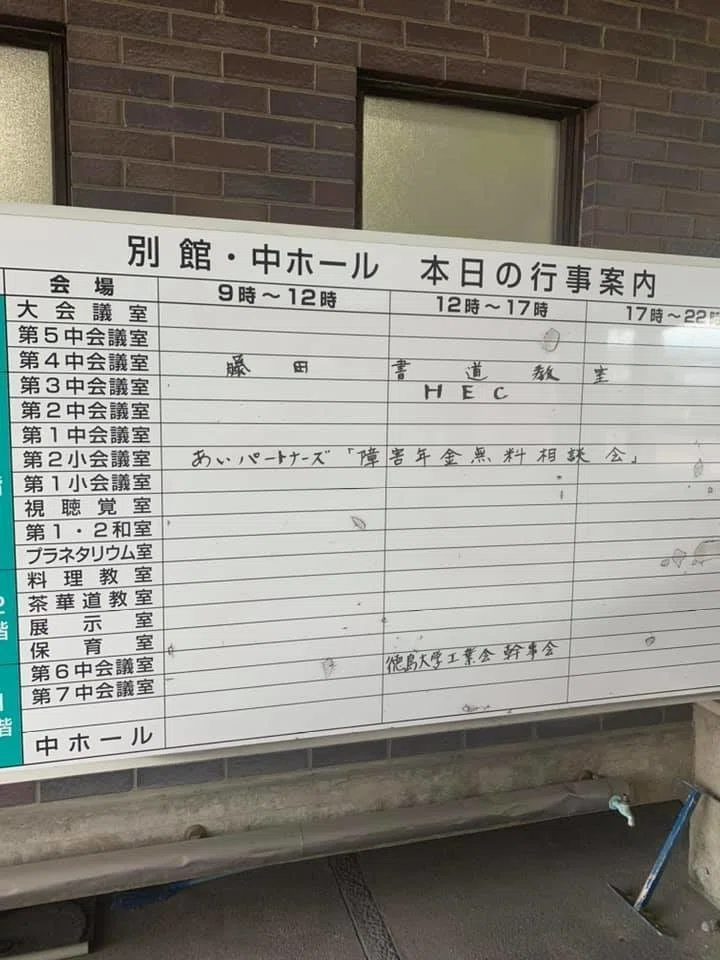 別館・中ホール 本日の行事案内
会場 9時～12時 12時～17時 17時～22時
大会議室
第5中会議室
第4中会議室 藤田書道教室
第3中会議室 HEC
第2中会議室
第1中会議室
第2小会議室 あいパートナーズ「障害年金無料相談会」
第1小会議室
視聴覚室
第1・2和室
プラネタリウム室
料理教室
茶華道教室
展示室
保育室
第6中会議室 徳島大学工業会 幹事会
第7中会議室
中ホール
階
2階
1階